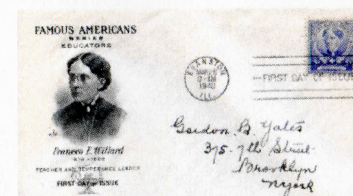 FAMOUS AMERICANS
SERIES
EDUCATORS
Frances E. Willard
TEACHER AND TEMPERANCE LEADER
FIRST DAY OF ISSUE
EVANSTON
1940
ILL.
FIRST DAY OF ISSUE
Gordon B. Yates
375. 7th Street
Brooklyn
N York